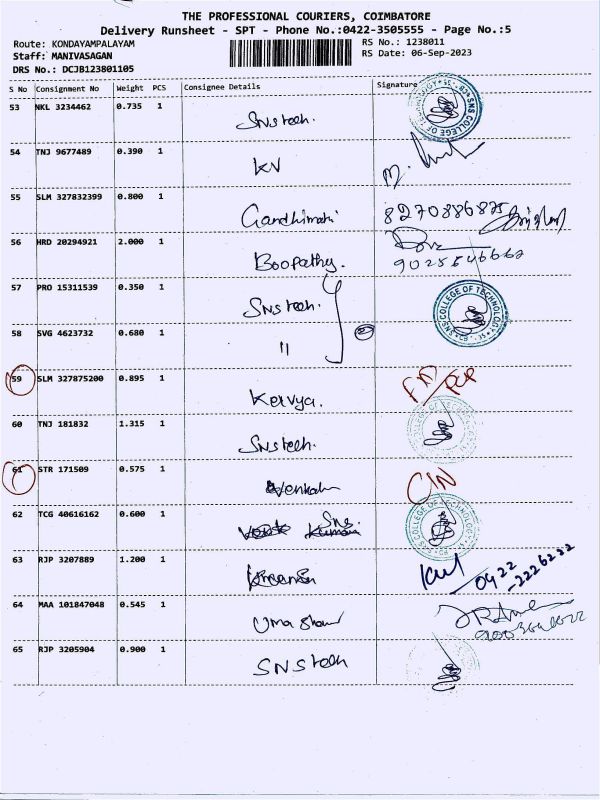 THE PROFESSIONAL COURIERS, COIMBATORE
Delivery Runsheet - SPT - Phone No.:0422-3505555 - Page No.:5
Route: KONDAYAMPALAYAM RS No.: 1238011
Staff: MANIVASAGAN RS Date: 06-Sep-2023
DRS No.: DCJB123801105
S No Consignment No Weight PCS Consignee Details Signature
53 NKL 3234462 0.735 1 SNS tech. SNS COLLEGE OF TECHNOLOGY
54 TNJ 9677489 0.390 1 KV
55 SLM 327832399 0.800 1 Gandhimathi 8270886825
56 HRD 20294921 2.000 1 Boopathy.
57 PRO 15311539 0.350 1 SNS tech. SNS COLLEGE OF TECHNOLOGY
58 SVG 4623732 0.680 1 "
59 SLM 327875200 0.895 1 Kavya.
60 TNJ 181832 1.315 1 SNS tech.
61 STR 171509 0.575 1 Venkat CIN
62 TCG 40616162 0.600 1 SNS. SNS COLLEGE OF TECHNOLOGY
63 RJP 3207889 1.200 1 0422
-2226232
64 MAA 101847048 0.545 1 Uma
65 RJP 3205904 0.900 1 SNS tech